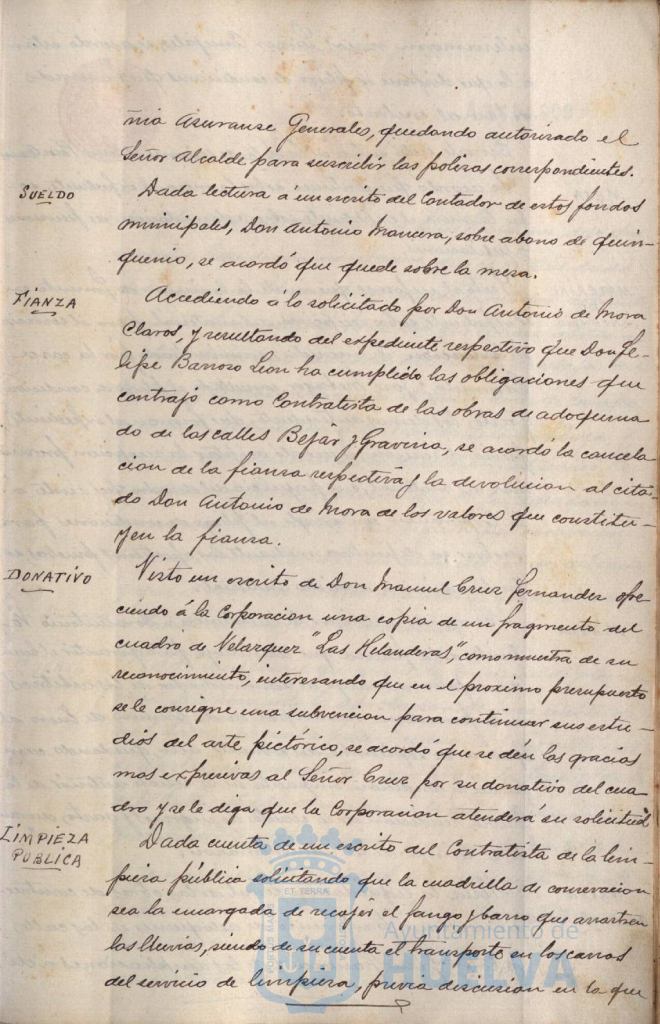 ñia Asuranse Generales, quedando autorizado el
Señor Alcalde para suscribir las polizas correspondientes.
SUELDO
Dada lectura á un escrito del Contador de estos fondos
municipales, Don Antonio Mancera, sobre abono de quin-
quenio, se acordó que quede sobre la mesa.
FIANZA
Accediendo á lo solicitado por Don Antonio de Mora
Claros, y resultando del expediente respectivo que Don Fe-
lipe Barroso Leon ha cumplido las obligaciones que
contrajo como Contratista de las obras de adoquina-
do de las calles Bejár y Gravina, se acordó la cancela-
cion de la fianza respectiva y la devolucion al cita-
do Don Antonio de Mora de los valores que constitu-
yen la fianza.
DONATIVO
Visto un escrito de Don Manuel Cruz Fernandez ofre-
ciendo á la Corporacion una copia de un fragmento del
cuadro de Velazquez "Las Helanderas", como muestra de su
reconocimiento, interesando que en el proximo presupuesto
se le consigne una subvencion para continuar sus estu-
dios del arte pictórico, se acordó que se dén las gracias
mas expresivas al Señor Cruz por su donativo del cua-
dro y se le diga que la Corporacion atenderá su solicitud
LIMPIEZA
PUBLICA
Dada cuenta de un escrito del Contratista de la lim-
pieza pública solicitando que la cuadrilla de conservacion
sea la encargada de recojer el fango y barro que arrastren
las lluvias, siendo de su cuenta el transporte en los carros
del servicio de limpieza, previa discusion en la que
ET TERRA
Ayuntamiento de
HUELVA